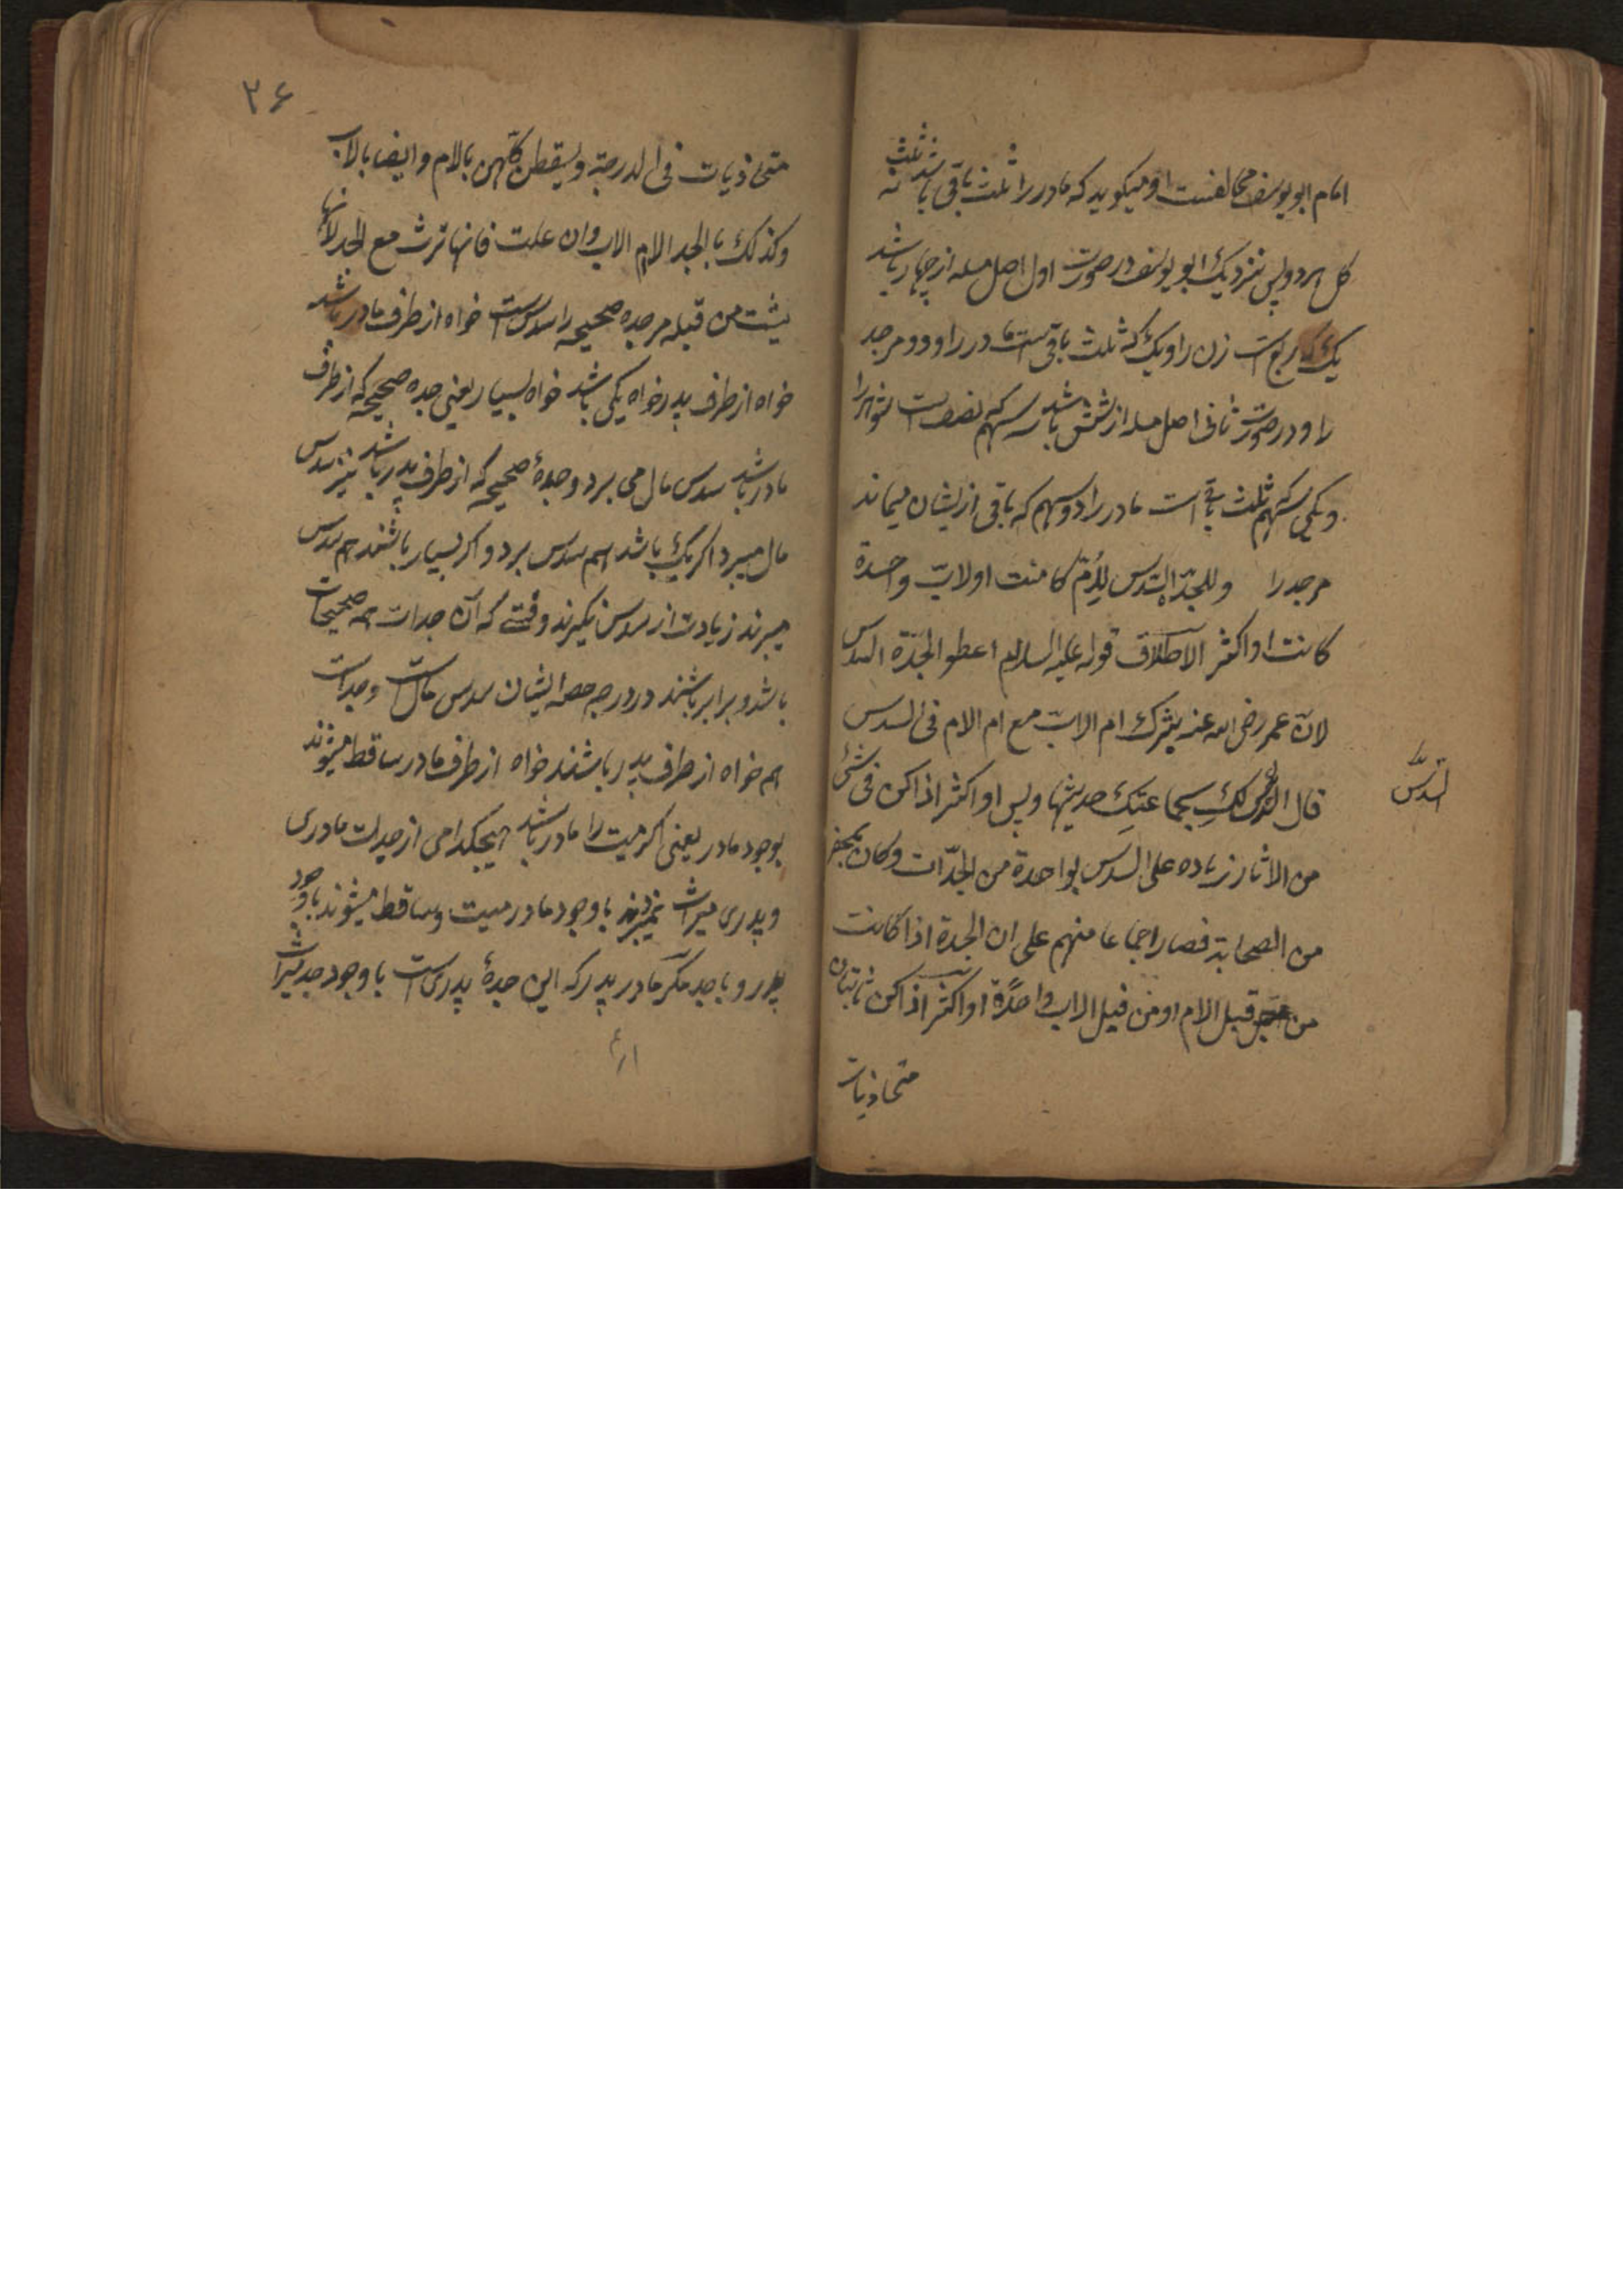 امام ابویوسف مخالفست او میگوید که مادر را ثلث باقی باشد نه ثلث
کل هر دو پس نزدیک ابو یوسف در صورت اول اصل مسله از چهار باشد
یک که ربع است زن را و یک که ثلث باقی است مادر را و دو مر جد
را و در صورت ثانی اصل مسله از شش باشد سه سهم که نصف است شوهر را
و یکی سهم ثلث باقی است مادر را دو سهم که باقی ازیشان میماند
مر جد را وللجدّة السّدس لِاُمّ کانت او لاب واحدة
کانت او اکثر لاطلاق قوله علیه السلام اعطو الجدّة السدس
لانّ عمر رضی الله عنه یشرک ام الابّ مع ام الام فی السدس
السّدسّ
قال لکِ بجماعتکِ حدیثها ولیس او اکثر اذا کن فی شئ
من الاثار زیاده علی السدس لواحدة من الجدّات وکان بمحضر
من الصحابة فصار اجماعا منهم علی ان الجدة اذا کانت
من قبل الام او من قبل الاب واحدةً او اکثر اذا کن ثابتان
متحاذیات
۳۶
متحاذیات فی الدرجة ویسقطن کلّهن بالام وایضا بالاب
وکذلک بالجد الا ام الاب وان علت فانها ترث مع الجد لانها
لیست من قبله مر جده صحیحه را سدس است خواه از طرف مادر باشد
خواه از طرف پدر خواه یکی باشد خواه بسیار یعنی جده صحیحه که از طرف
مادر باشد سدس مال می برد و جدهٔ صحیحه که از طرف پدر باشد نیز سدس
مال میبرد اکر یک باشد هم سدس برد و اکر بسیار باشند هم سدس
میبرند زیادت از سدس نکیرند وقتے که آن جدات همه صحیحات
باشد و برابر باشند در درجه حصه ایشان سدس مال است و جدات
هم خواه از طرف پدر باشند خواه از طرف مادر ساقط میشوند
بوجود مادر یعنی اکر میت را مادر باشد هیچکدامی از جدات مادری
و پدری میراث نمیبرند باوجود مادر میت و ساقط میشوند باوجود
پدر و با جد مکر مادر پدر که این جدهٔ پدریست باوجود جد میراث